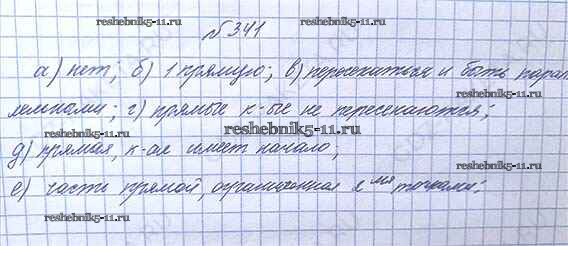 reshebnik5-11.ru
№341
reshebnik5-11.ru
а) нет; б) 1 прямую; в) пересекаться и быть парал
лельными; г) прямые к-ые не пересекаются;
reshebnik5-11.ru
д) прямая, к-ая имеет начало;
е) часть прямой, ограниченная 2мя точками.
reshebnik5-11.ru
reshebnik5-11.ru